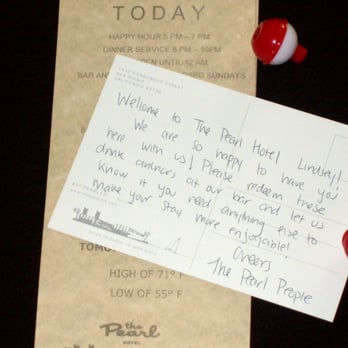 TODAY
HAPPY HOUR 5 PM – 7 PM
DINNER SERVICE 6 PM – 10PM
OPEN UNTIL 12 AM
BAR AN
SED SUNDAYS
1410 ROSECRANS STREET
SAN DIEGO
CALIFORNIA 92106
Welcome to The Pearl Hotel Lindsey!
We are so happy to have you
here with us! Please redeem these
drink chances at our bar and let us
know if you need anything else to
make your stay more enjoyable!
Cheers
The Pearl People
TOMO
HIGH OF 71° F
LOW OF 55° F
the
Pearl
HOTEL